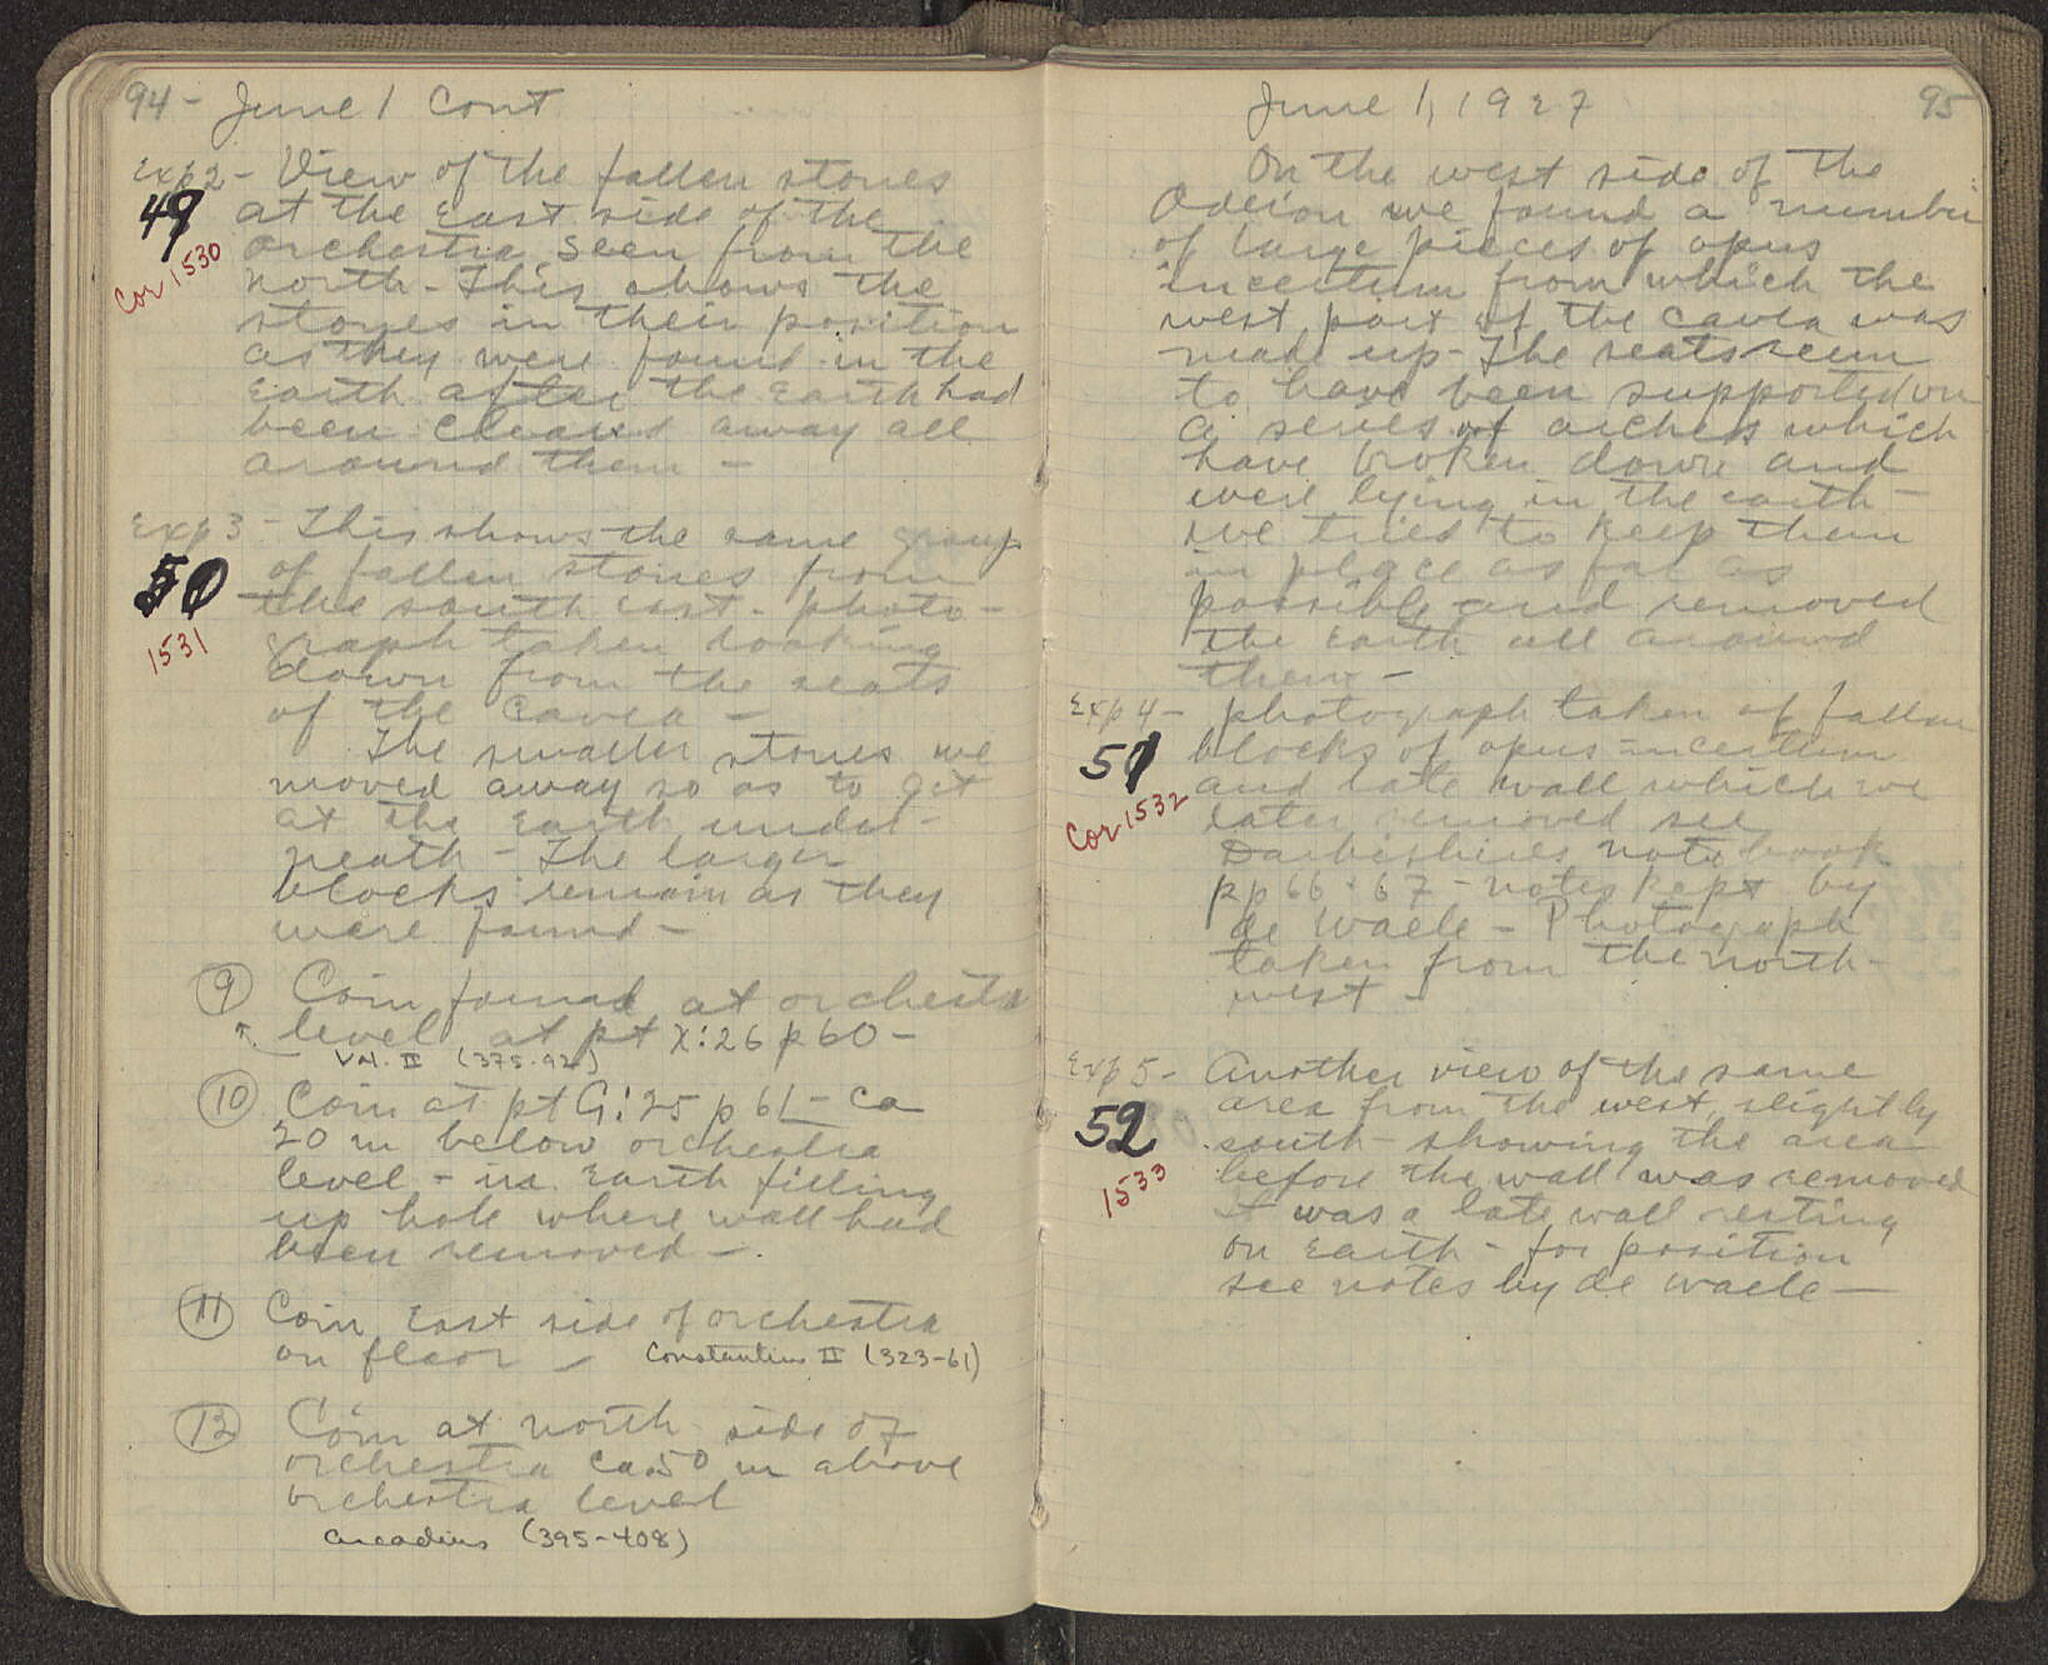 94 - June 1 Cont
Exp 2 - View of the fallen stones
49 at the East side of the
Cor 1530
orchestra seen from the
north - This shows the
stones in their position
as they were found in the
Earth after the Earth had
been cleared away all
around them -
Exp 3 - This shows the same group
50 of fallen stones from
the south east - photo -
1531
graph taken looking
down from the seats
of the cavea -
The smaller stones we
moved away so as to get
at the Earth under -
neath - The larger
blocks remain as they
were found -
9 Coin found at orchestra
level at pt X:26 p 60 -
Val. II (375-92)
10 Coin at pt G:25 p 61 - ca
20 m below orchestra
level - in Earth filling
up hole where wall had
been removed -
11 Coin East side of orchestra
on floor - Constantius II (323-61)
12 Coin at north side of
orchestra ca .50 m above
orchestra level
Arcadius (395-408)
June 1, 1927 95
On the west side of the
Odeion we found a number
of large pieces of opus
incertum from which the
west part of the cavea was
made up - The seats seem
to have been supported on
a series of arches which
have broken down and
were lying in the earth -
we tried to keep them
in place as far as
possible and removed
the Earth all around
them -
Exp 4 - photograph taken of fallen
51 blocks of opus incertum
and late wall which we
Cor 1532
later removed see
Darbishires note book
pp 66 + 67 - notes kept by
de Waele - Photograph
taken from the north -
west -
Exp 5 - Another view of the same
52 area from the west, slightly
south - showing the area
1533
before the wall was removed
It was a late wall resting
on Earth - for position
see notes by de Waele -